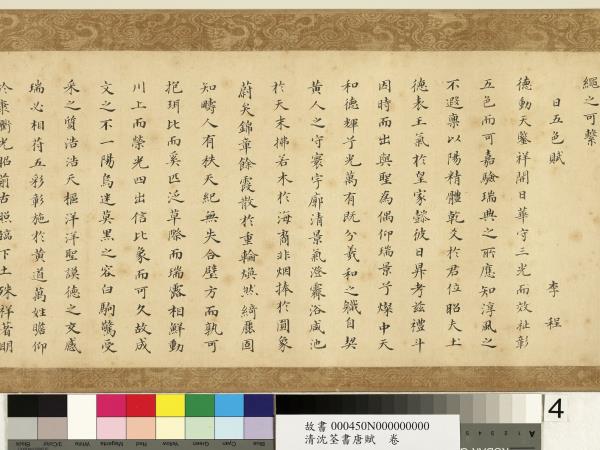 繩之可繫
日五色賦　李程
德動天鑒祥開日華守三光而效祉彰
五色而可嘉驗瑞典之所應知淳風之
不遐稟以陽精體乾爻於君位昭夫土
德表王氣於皇家懿彼日昇考茲禮斗
因時而出與聖為偶仰瑞景兮燦中天
和德輝兮光萬有既分羲和之職自契
黃人之守寰宇廓清景氣澄霽浴咸池
於天末拂若木於海裔非烟捧於圓象
蔚矣錦章餘霞散於重輪煥然綺麗固
知疇人有秩天紀無失合璧方而孰可
抱珥比而奚匹泛草際而瑞露相鮮動
川上而榮光四出信比象而可久故成
文之不一陽烏迷莫黑之容白駒驚受
采之質浩浩天樞洋洋聖謨德之交感
瑞必相符五彩彰施於黃道萬姓瞻仰
康衢光昭前古照臨下土殊祥著明
4
故書 000450N000000000
清沈荃書唐賦　卷
Black
3/Color
White
Magenta
Red
Yellow
Green
Cyan
Blue
5
4
3
2
1
A